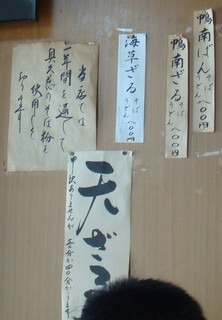 鴨南ばん そば うどん 八〇〇円
鴨南ざる そば うどん 八〇〇円
海草ざる そば うどん 八〇〇円
当店では
一年間を通して
奥久慈のそば粉を
使用して
おります
天ざる
申し訳ありませんが